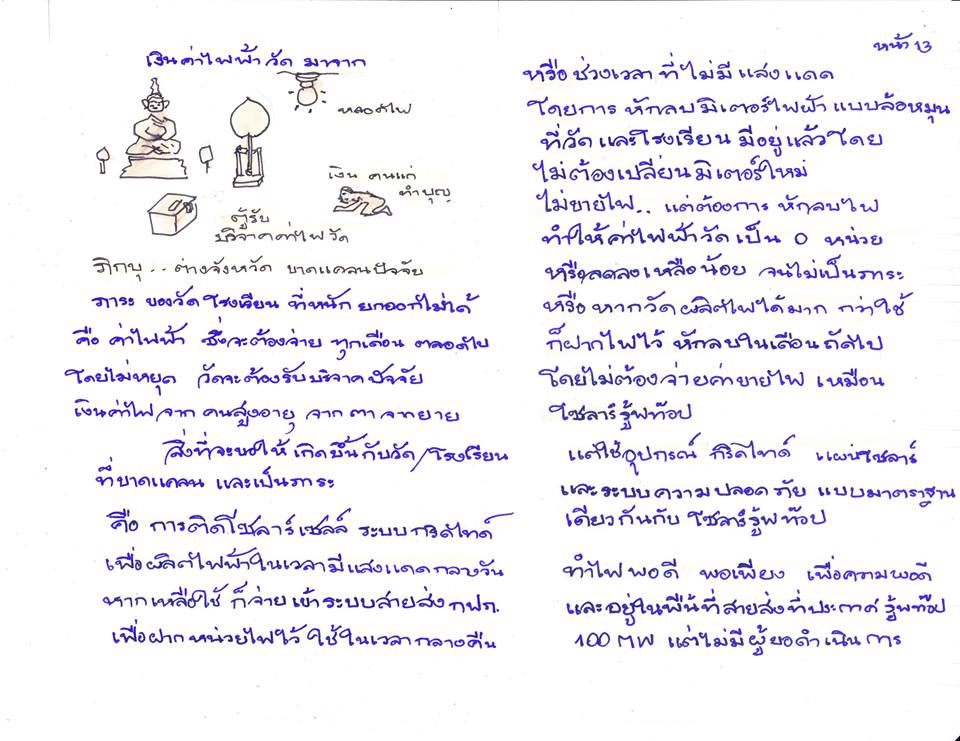 เงินค่าไฟฟ้าวัด มาจาก
หลอดไฟ
เงิน คนแก่
ทำบุญ
ตู้รับ
บริจาคค่าไฟวัด
ภิกษุ .. ต่างจังหวัด ขาดแคลนปัจจัย
ภาระ ของวัด โรงเรียน ที่หนัก ยกออกไม่ได้
คือ ค่าไฟฟ้า ซึ่งจะต้องจ่าย ทุกเดือน ตลอดไป
โดยไม่หยุด วัดจะต้องรับบริจาคปัจจัย
เงินค่าไฟ จาก คนสูงอายุ จาก ตา จากยาย
สิ่งที่จะขอให้ เกิดขึ้นกับวัด/โรงเรียน
ที่ขาดแคลน และเป็นภาระ
คือ การติดโซลาร์เซลล์ ระบบกริดไทด์
เพื่อผลิตไฟฟ้าในเวลามีแสงแดดกลางวัน
หากเหลือใช้ ก็จ่ายเข้าระบบสายส่ง กฟภ.
เพื่อฝากหน่วยไฟไว้ ใช้ในเวลากลางคืน
หน้า 13
หรือช่วงเวลา ที่ไม่มีแสงแดด
โดยการ หักลบมิเตอร์ไฟฟ้า แบบล้อหมุน
ที่วัด และโรงเรียน มีอยู่แล้ว โดย
ไม่ต้องเปลี่ยนมิเตอร์ใหม่
ไม่ขายไฟ.. แต่ต้องการ หักลบไฟ
ทำให้ค่าไฟฟ้าวัดเป็น 0 หน่วย
หรือลดลงเหลือน้อย จนไม่เป็นภาระ
หรือ หากวัดผลิตไฟได้มาก กว่าใช้
ก็ฝากไฟไว้ หักลบในเดือนถัดไป
โดยไม่ต้องจ่ายค่าขายไฟ เหมือน
โซลาร์รู้ฟท๊อป
แต่ใช้อุปกรณ์ กริดไทด์ แผงโซลาร์
และระบบความปลอดภัย แบบมาตราฐาน
เดียวกันกับ โซลาร์รู้ฟท๊อป
ทำไฟพอดี พอเพียง เพื่อความพอดี
และอยู่ในพื้นที่สายส่งที่ประกาศ รู้ฟท๊อป
100 MW แต่ไม่มีผู้ขอดำเนินการ